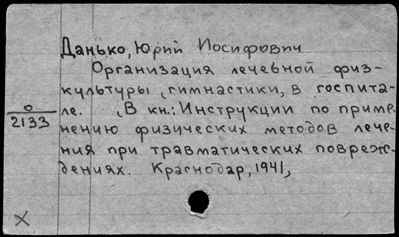 Данько, Юрий Иосифович
Организация лечебной физ-
культуры, гимнастики, в госпита-
ле. , В кн.: Инструкции по приме-
нению физических методов лече-
ния при травматических повреж-
дениях. Краснодар, 1941,
0
2133
X